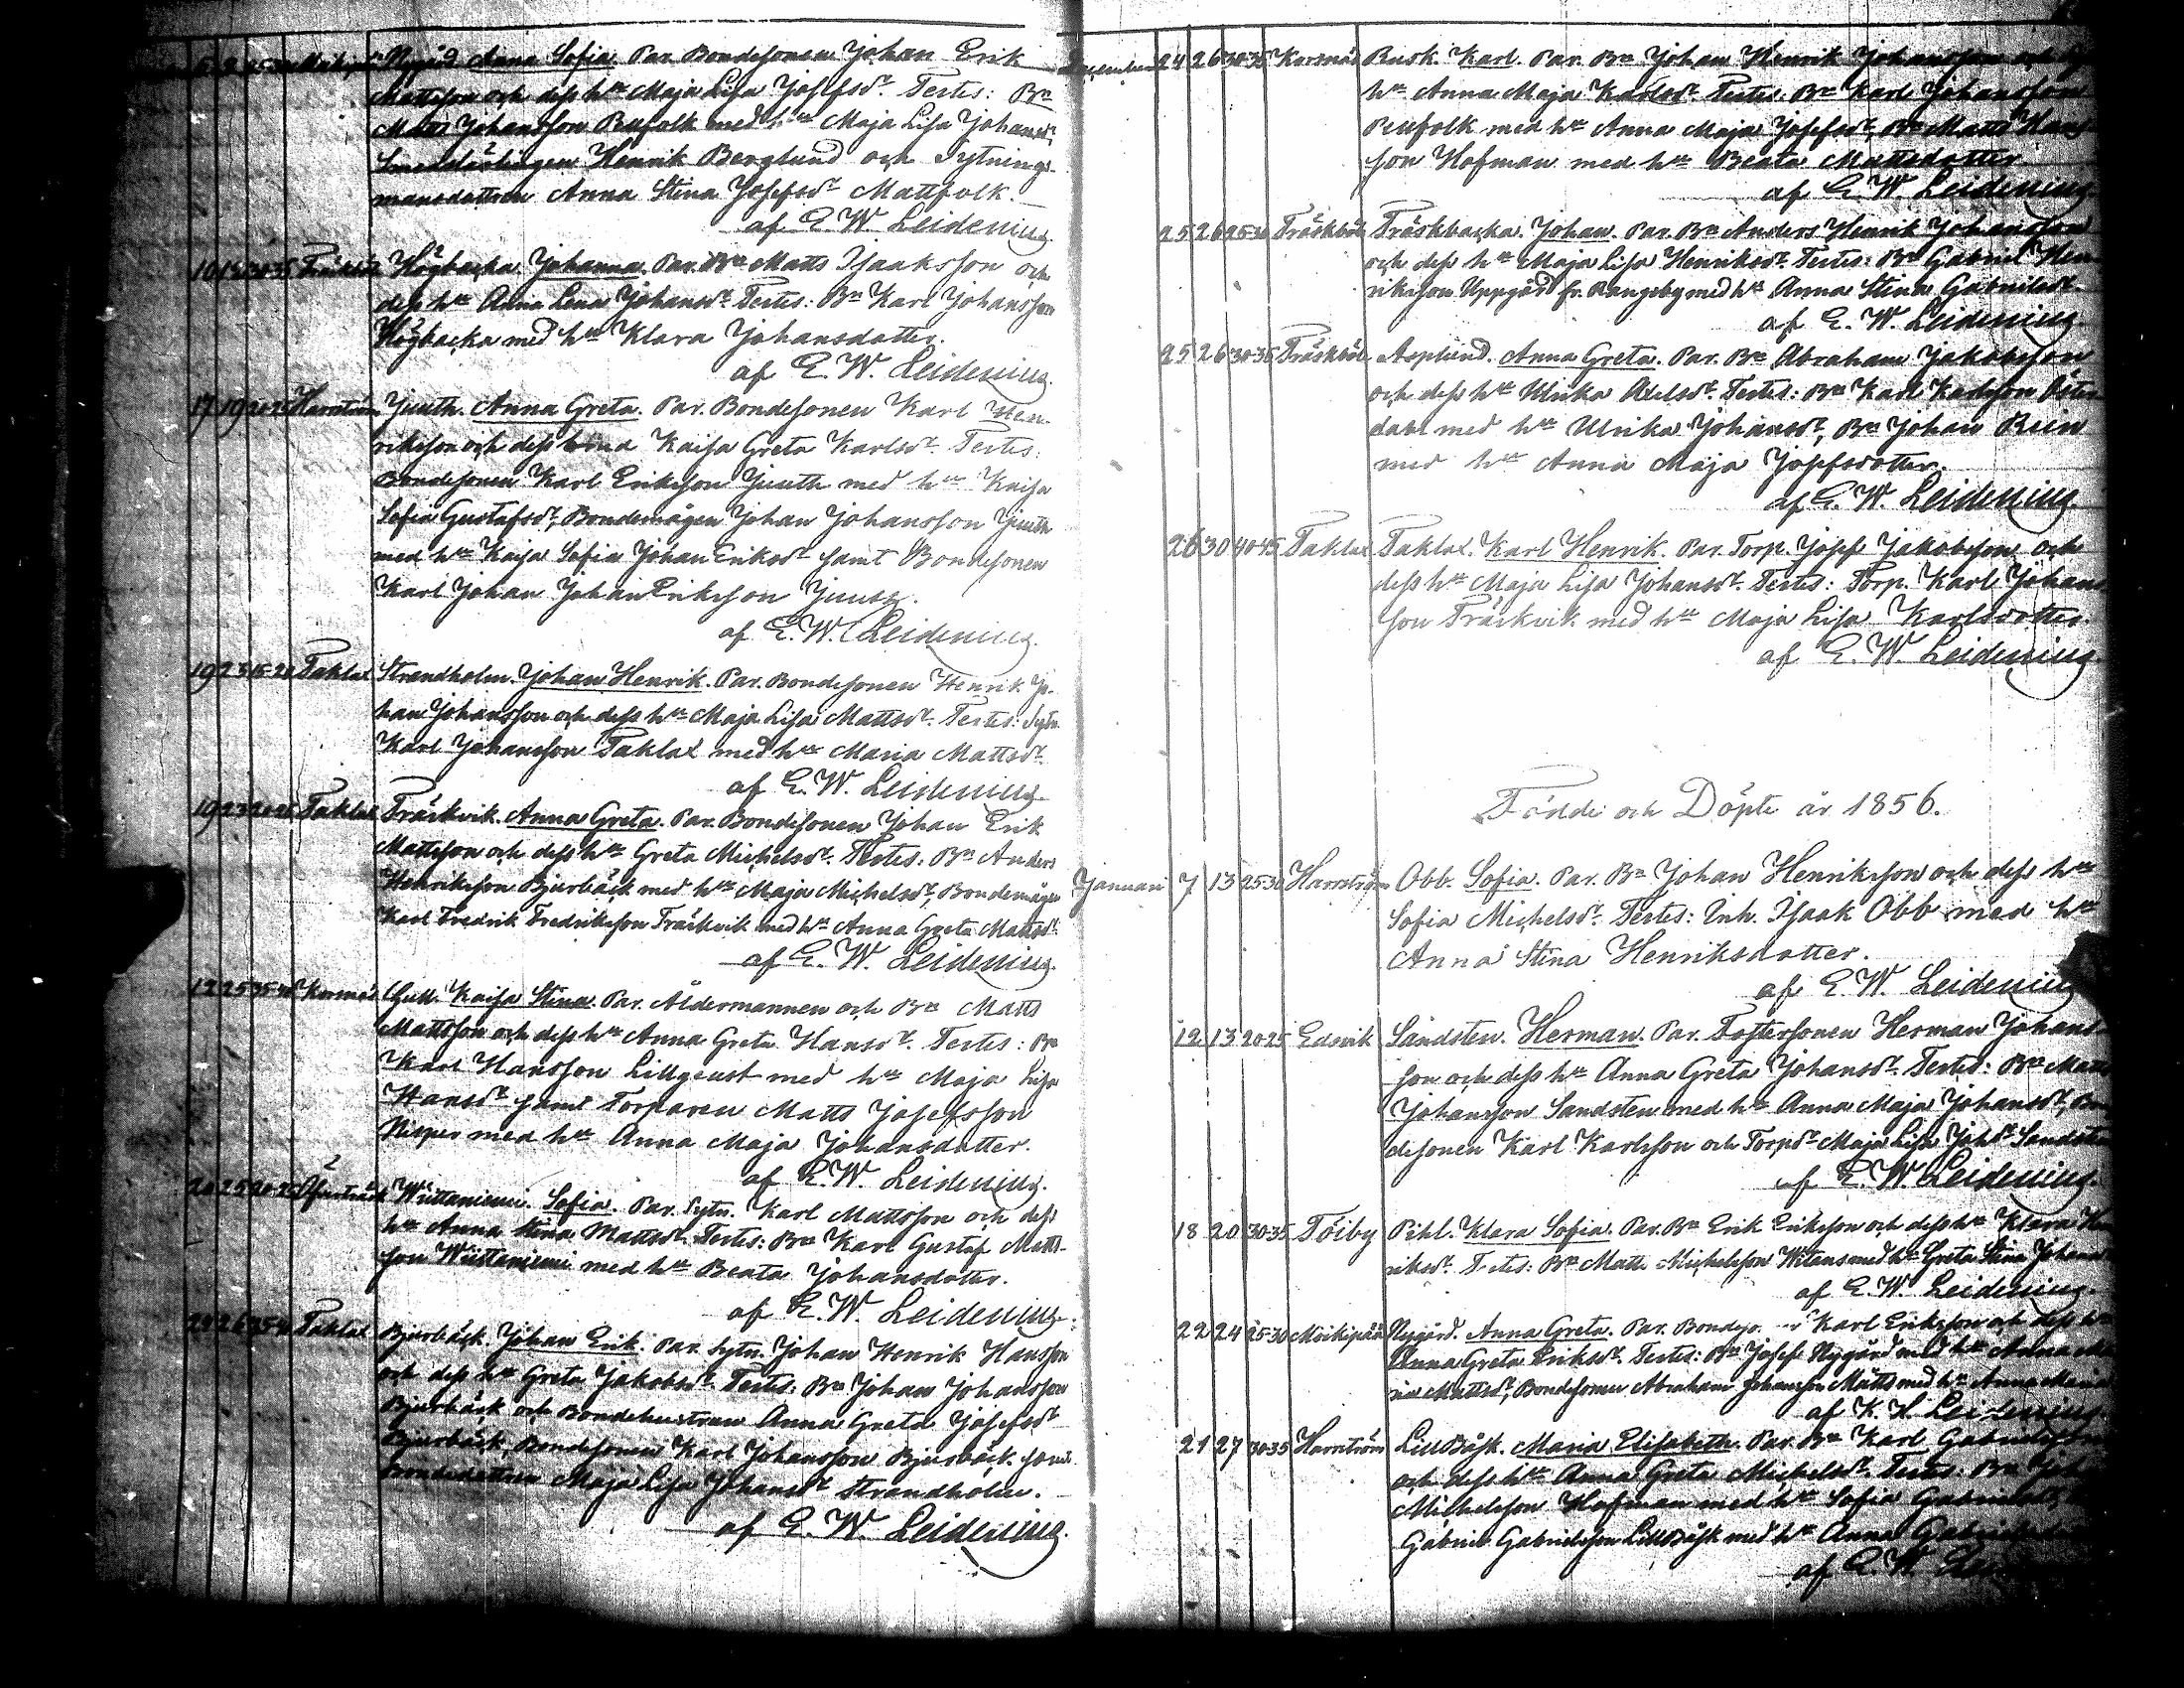 Nygård Anna Sofia. Par. Bondesonen Johan Erik
Mattsson och dess hu Maja Lisa Josefsdr. Testes: Bn
Matts Johansson Rufolk med hu Maja Lisa Johansdr,
Smedslärlingen Henrik Berglund och Sytnings-
mansdottren Anna Stina Josefsdr Mattfolk.
af E. W. Leidenius.
10 15 30-35 Träskböle Högbacka. Johanna. Par. Bn Matts Isaaksson och
dess hu Anna Lena Johansdr. Testes: Bn Karl Johansson
Högbacka med hu Klara Johansdotter.
af E. W. Leidenius.
17 19 Harrström Juuth. Anna Greta. Par. Bondesonen Karl Hen-
riksson och dess hustru Kaisa Greta Karlsdr. Testes:
Bondesonen Karl Eriksson Juuth med hu Kaisa
Sofia Gustafsdr, Bondemågen Johan Johansson Juuth
med hu Kaisa Sofia Johan Eriksdr samt Bondesonen
Karl Johan Johan Eriksson Juuth.
af E. W. Leidenius.
19 23 15-20 Taklax Strandholm. Johan Henrik. Par. Bondesonen Henrik Jo-
han Johansson och dess hu Maja Lisa Mattsdr. Testes: Sytn.
Karl Johansson Taklax med hu Maria Mattsdr.
af E. W. Leidenius.
19 23 20-25 Taklax Träskvik. Anna Greta. Par. Bondesonen Johan Erik
Mattsson och dess hu Greta Michelsdr. Testes: Bn Anders
Henriksson Bjurbäck med hu Maja Michelsdr, Bondemågen
Karl Fredrik Fredriksson Träskvik med hu Anna Greta Mattsdr.
af E. W. Leidenius.
25 35-40 Korsnäs Gull. Kaisa Stina. Par. Åldermannen och Bn Matts
Mattsson och dess hu Anna Greta Hansdr. Testes: Bn
Karl Hansson Lillgeust med hu Maja Lisa
Hansdr samt Torparen Matts Josefsson
Nisper med hu Anna Maja Johansdotter.
af E. W. Leidenius.
25 Wiittaniemi. Sofia. Par. Sytn. Karl Mattsson och dess
hu Anna Stina Mattsdr. Testes: Bn Karl Gustaf Matts-
son Wiittaniemi med hu Beata Johansdotter.
af E. W. Leidenius.
26 Taklax Bjurbäck. Johan Erik. Par. Sytn. Johan Henrik Hansson
och dess hu Greta Jakobsdr. Testes: Bn Johan Johansson
Bjurbäck och Bondehustrun Anna Greta Josefsdr
Bjurbäck, Bondesonen Karl Johansson Bjurbäck samt
Bondedottren Maja Lisa Johansdr Strandholm.
af E. W. Leidenius.
December 24 26 30-35 Korsnäs Rusk. Karl. Par. Bn Johan Henrik Johansson och
hu Anna Maja Karlsdr. Testes: Bn Karl Johansson
Rufolk med hu Anna Maja Josefsdr, Bn Matts Hans-
son Hofman med hu Beata Mattsdotter
af E. W. Leidenius.
25 26 25-30 Träskböle Träskbacka. Johan. Par. Bn Anders Henrik Johansson
och dess hu Maja Lisa Henriksdr. Testes: Bn Gabriel Hen-
riksson Uppgård fr. Rangsby med hu Anna Stina Gabrielsdr.
af E. W. Leidenius.
25 26 30-35 Träskböle Asplund. Anna Greta. Par. Bn Abraham Jakobsson
och dess hu Ulrika Axelsdr. Testes: Bn Karl Karlsson Öster-
dahl med hu Ulrika Johansdr, Bn Johan Rein
med hu Anna Maja Josefsdotter.
af E. W. Leidenius.
26 30 40-45 Taklax Taklax. Karl Henrik. Par. Torp. Josef Jakobsson och
dess hu Maja Lisa Johansdr. Testes: Torp. Karl Johans-
son Träskvik med hu Maja Lisa Karlsdotter.
af E. W. Leidenius.
Födde och Döpte år 1856.
Januari 7 13 25-30 Harrström Obb. Sofia. Par. Bn Johan Henriksson och dess hu
Sofia Michelsdr. Testes: Inh. Isaak Obb med hu
Anna Stina Henriksdotter.
af E. W. Leidenius
12 13 20-25 Edsvik Sandsten. Herman. Par. Fostersonen Herman Johans-
son och dess hu Anna Greta Johansdr. Testes: Bn Matts
Johansson Sandsten med hu Anna Maja Johansdr, Bon-
desonen Karl Karlsson och Torpdr Maja Lisa Johsdr Sandsten
af E. W. Leidenius.
18 20 30-35 Töiby Pihl. Klara Sofia. Par. Bn Erik Eriksson och dess hu Klara Hen-
riksdr. Testes: Bn Matts Michelsson Witans med hu Greta Stina Johans
af E. W. Leidenius.
22 24 25-30 Moikipää Nygård. Anna Greta. Par. Karl Eriksson och dess hu
Anna Greta Eriksdr. Testes: Bn Josef Nygård med hu Anna Ma-
ria Mattsdr, Bondesonen Abraham Johansson Matts med hu Anna Maria
af K. H. Leidenius.
21 27 30-35 Harrström LillBåsk. Maria Elisabeth. Par. Bn Karl Gabrielsson
och dess hu Anna Greta Michelsdr. Testes: Bn
Michelsson Hofman med hu Sofia Gabrielsdr,
Gabriel Gabrielsson LillBåsk med hu Anna
af E. W.